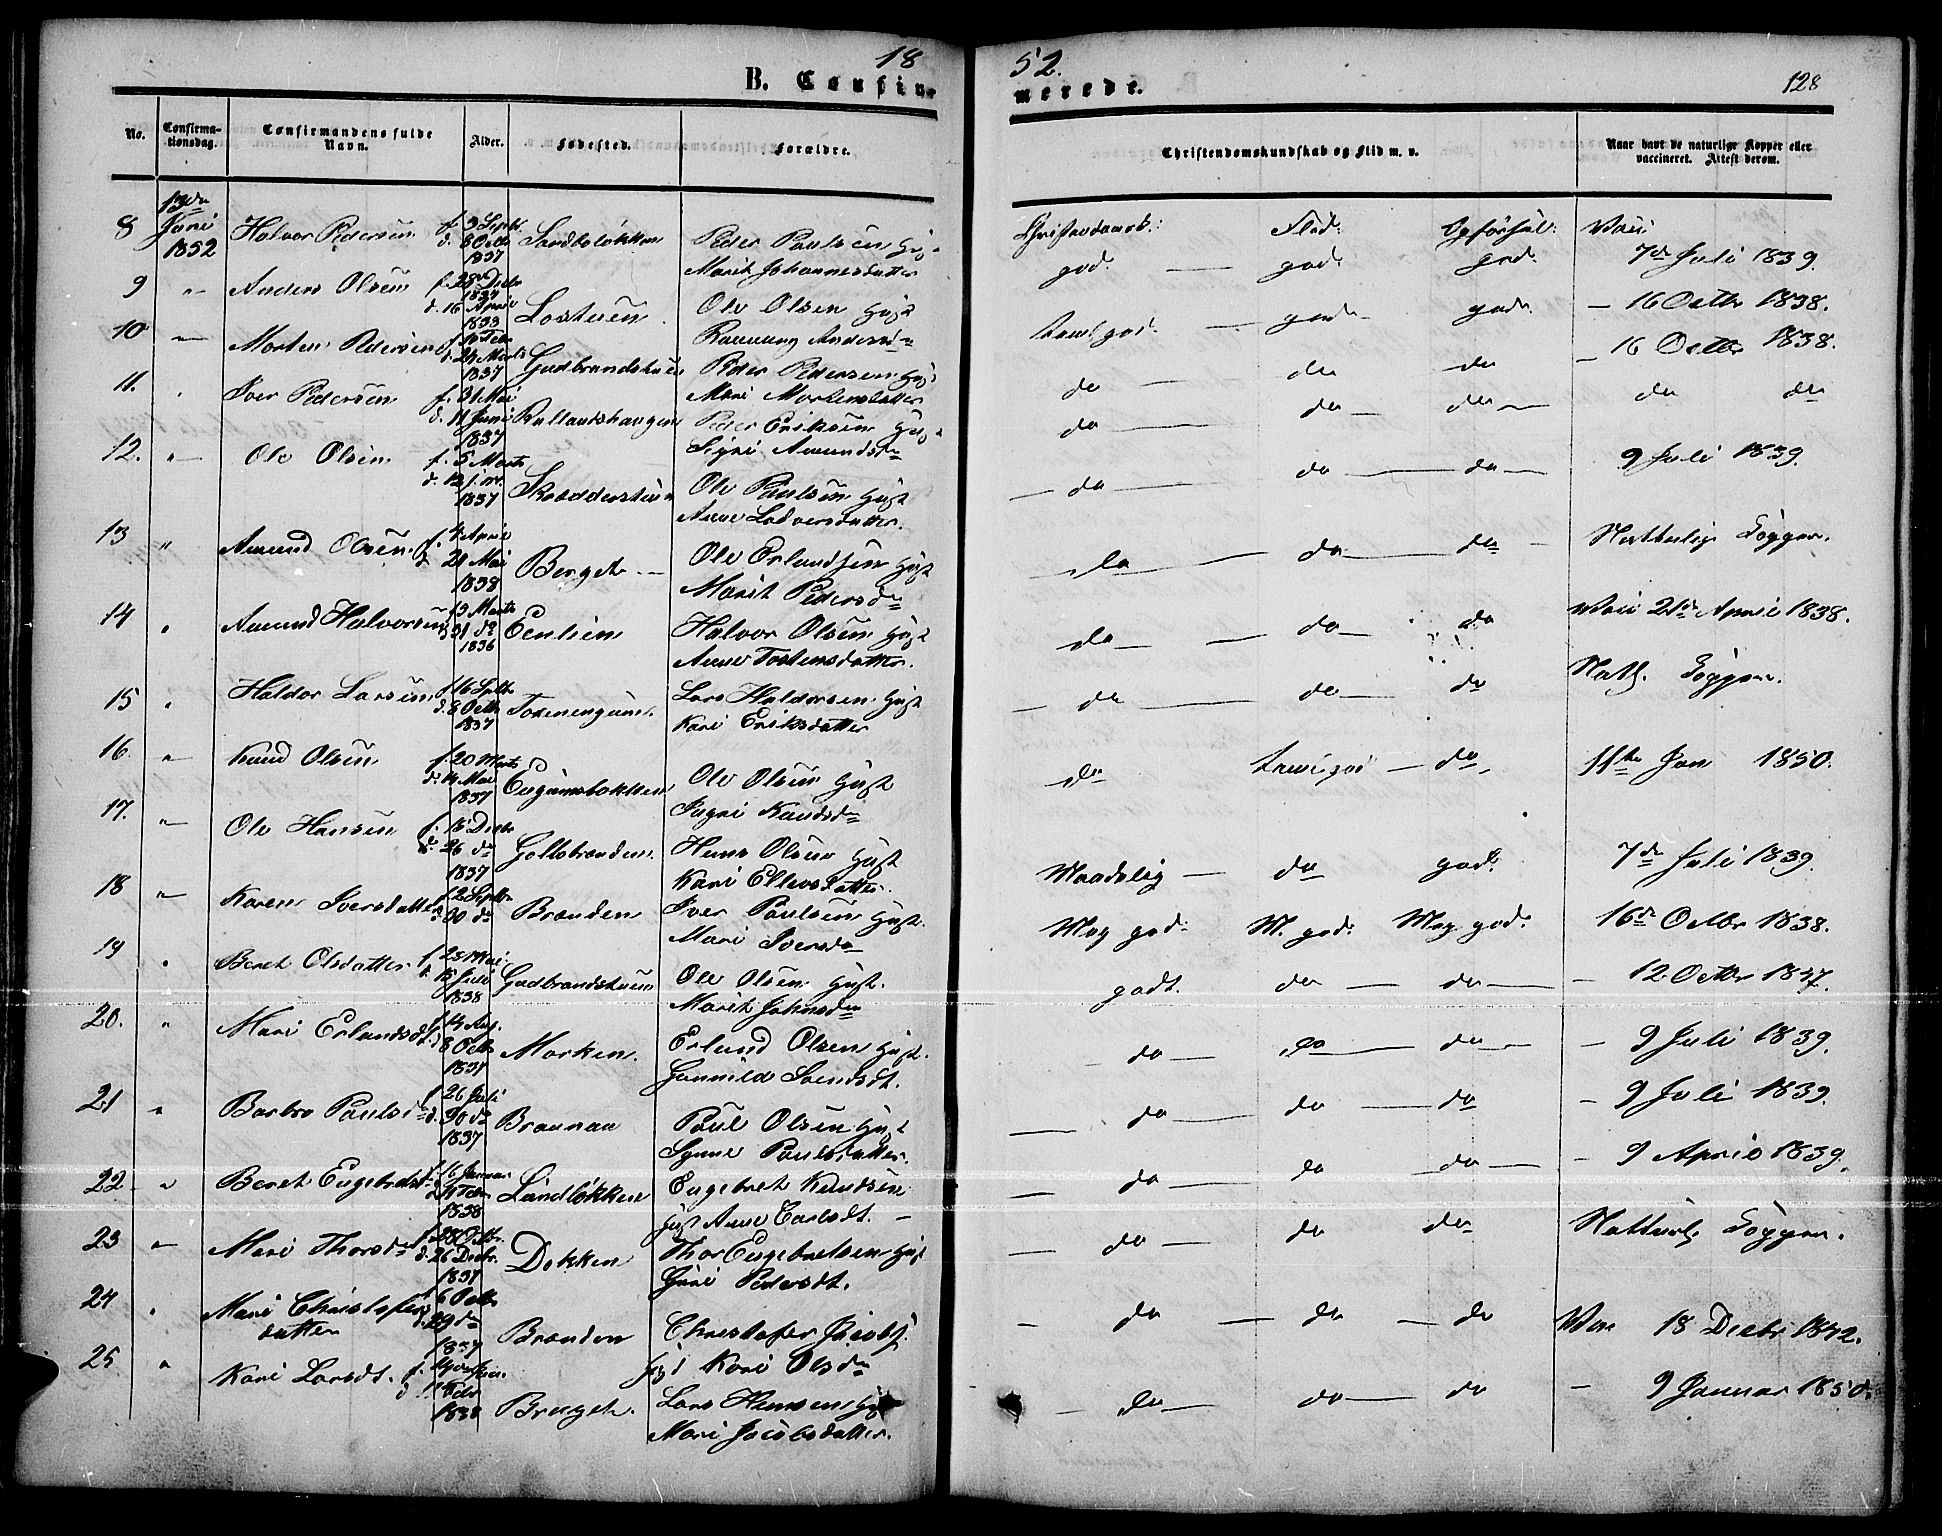 18
52.
128
B. Confir-
merede.
No.
Confirma-
tionsdag.
Confirmandens fulde
Navn.
Alder.
Fødested.
Forældre.
Christendomskundskab og Flid m. v.
Naar havt de naturlige Kopper eller
vaccineret. Attest derom.
13de
Juni
1852
8 Halvor Pedersen
f. 3 Septr
d. 8 Octb
1837
Sandboløkken
Peder Paulsen Hust
Marit Johannesdatter
Christendomsk: Flid: Opførsel: Vacc
god. — god. god. 7de Juli 1839.
9 " Anders Olsen
d. 16 April
Lostuen
Ole Olsen Hust
Rønnaug Andersdr
god. god. — 16 Octbr 1838.
10 — Morten Pedersen
f. 10 Febr
d. 24 Marts
1837
Gudbrandstuen
Peder Pedersen Hust
Mari Mortensdatter
do — do do — 16 Octbr 1838.
11. " Iver Pedersen
f. 3 Mai
d. 11 Juni
1837
Rullandshaugen
Peder Eriksen Hust
Sigri Amundsdr
do — do — do — do do
12. " Ole Olsen
f. 5 Marts
1837
Ole Paulsen Hust
Anne Lodversdatter.
— do — do — do — 9 Juli 1839.
13 " Amund Olsen
f. 4 April
d. 21 Mai
1838
Berget —
Ole Erlandsen Hust
Marit Pedersdr
do — do — do — Natturlig Kopper.
14 " Amund Halvorsen
f. 3 Marts
31 do
1836
Halvor Olsen Hust
Anne Tostensdatter.
do — do — do Vacc 21de April 1838.
15 " Haldor Larsen
f. 16 Septbr
d. 8 Octb
1837
Lars Haldorsen Hust
Kari Eriksdatter
— do — do — do Natl. Kopper.
16. " Knud Olsen
f. 20 Marts
d. 14 Mai
1837
Ole Olsen Hust
Ingri Knudsdr
do — do, 11te Jan 1850.
17. — Ole Hansen
f. 15 Decbr
d. 26 do
1837
Hans Olsen Hust
Kari Ellevsdatter.
Maadelig — do god. 7de Juli 1839.
18 — Karen Iversdatter
f. 2 Septbr
d. 30 do
Brænden
Iver Paulsen Hust.
Mari Iversdr
Meg god. M. god. Meg god. 16de Octbr 1838.
19 " Beret Olsdatter
f. 23 Mai
d. 15 Juli
1838
Gudbrandstuen
Ole Olsen Hust.
Marit Johnsdr
godt. do — do — 12 Octbr 1847.
20. " Mari Erlandsdt.
f. 14 Aug.
8 Octb
1837
Morken.
Erland Olsen Hust.
Gunnild Svendsdt.
do — do — do — 9 Juli 1839.
21 " Barbro Paulsdr
f. 26 Juli
d. 30 do
1837
Paul Olsen Hust
Synne Paulsdatter.
— do — do — do — 9 Juli 1839.
22 " Beret Engebretsdt
f. 16 Januar
1838
Engebret Knudsen
Hust Anne Carlsdt. —
— do — do — do — 9 April 1839.
23 — Mari Thorsdr
f. 28 Octbr.
d. 26 Decbr.
1837
Dokken
Thor Engebretsen Hust
Guri Pedersdt.
— do — do do Natturl. Kopper.
24 " Mari Christofers
datter
f. 6 Octbr
d. 29 do
1837
Brænden
Christofer Jacobs.
Hust Kari Olsdr
— do — do — do Vac 18 Decbr 1842.
25 " Kari Larsdt.
1838
Lars Hansen Hust
Mari Jacobsdatter.
— do — do — do — 9 Januar 1850.